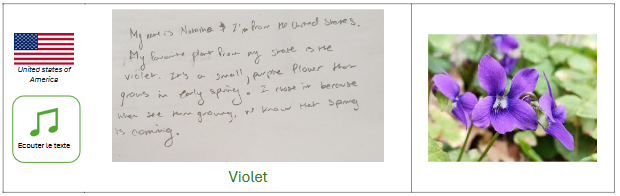 United states of
America
Ecouter le texte
My name is Nomma & I'm from the United States.
My favorite plant from my state is the
violet. It's a small, purple flower that
grows in early spring. I chose it because
when see them growing, I know that spring
is coming.
Violet